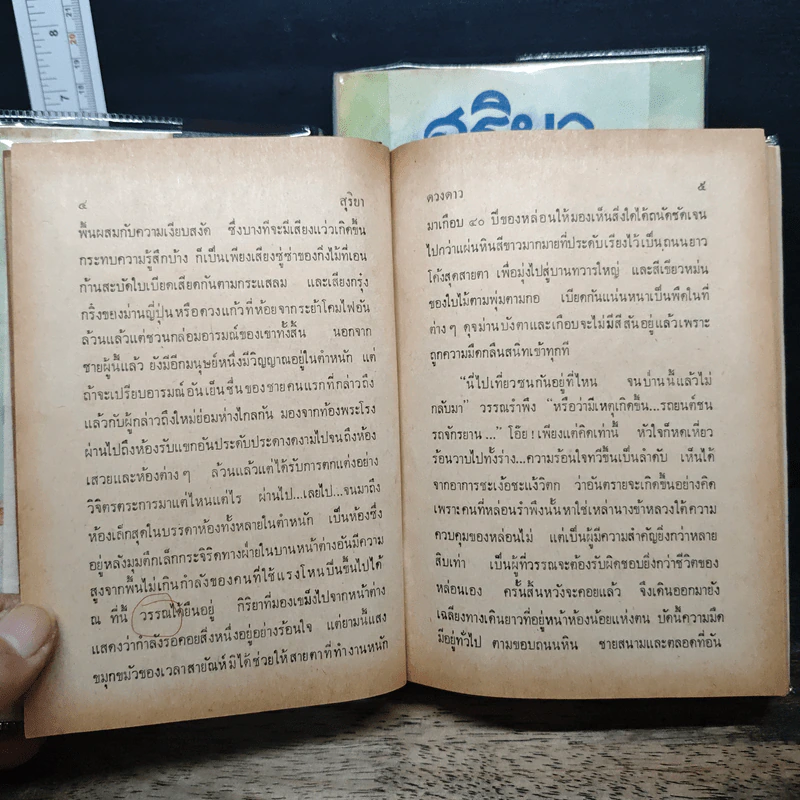 สุริยา
๔
สุริยา
พื้นผสมกับความเงียบสงัด ซึ่งบางทีจะมีเสียงแว่วเกิดขึ้น
กระทบความรู้สึกบ้าง ก็เป็นเพียงเสียงซู่ซ่าของกิ่งไม้ที่เอน
ก้านสะบัดใบเบียดเสียดกันตามกระแสลม และเสียงกรุ๋ง
กริ๋งของม่านญี่ปุ่นหรือดวงแก้วที่ห้อยจากระย้าโคมไฟอัน
ล้วนแล้วแต่ชวนกล่อมอารมณ์ของเขาทั้งสิ้น นอกจาก
ชายผู้นี้แล้ว ยังมีอีกมนุษย์หนึ่งมีวิญญาณอยู่ในตำหนัก แต่
ถ้าจะเปรียบอารมณ์อันเย็นชื่นของชายคนแรกที่กล่าวถึง
แล้วกับผู้กล่าวถึงใหม่ย่อมห่างไกลกัน มองจากท้องพระโรง
ผ่านไปถึงห้องรับแขกอันประดับประดางดงามไปจนถึงห้อง
เสวยและห้องต่างๆ ล้วนแล้วแต่ได้รับการตกแต่งอย่าง
วิจิตรตระการมาแต่ไหนแต่ไร ผ่านไป...เลยไป...จนมาถึง
ห้องเล็กสุดในบรรดาห้องทั้งหลายในตำหนัก เป็นห้องซึ่ง
อยู่หลังมุมตึกเล็กกระจิริดทางฝ่ายในบานหน้าต่างอันมีความ
สูงจากพื้นไม่เกินกำลังของคนที่ใช้แรงโหนปีนขึ้นไปได้
ณ ที่นี้ วรรณได้ยืนอยู่ กิริยาที่มองเขม็งไปจากหน้าต่าง
แสดงว่ากำลังรอคอยสิ่งหนึ่งอยู่อย่างร้อนใจ แต่ยามนี้แสง
ขมุกขมัวของเวลาสายัณห์มิได้ช่วยให้สายตาที่ทำงานหนัก
ดวงดาว
๕
มาเกือบ ๔๐ ปีของหล่อนให้มองเห็นสิ่งใดได้ถนัดชัดเจน
ไปกว่าแผ่นหินสีขาวมากมายที่ประดับเรียงไว้เป็นถนนยาว
โค้งสุดสายตา เพื่อมุ่งไปสู่บานทวารใหญ่ และสีเขียวหม่น
ของใบไม้ตามพุ่มตามกอ เบียดกันแน่นหนาเป็นพืดในที่
ต่างๆ ดุจม่านบังตาและเกือบจะไม่มีสีสันอยู่แล้วเพราะ
ถูกความมืดกลืนสนิทเข้าทุกที
"นี่ไปเที่ยวซนกันอยู่ที่ไหน จนป่านนี้แล้วไม่
กลับมา" วรรณรำพึง "หรือว่ามีเหตุเกิดขึ้น...รถยนต์ชน
รถจักรยาน..." โอ๊ย! เพียงแต่คิดเท่านี้ หัวใจก็หดเหี่ยว
ร้อนวาบไปทั้งร่าง...ความร้อนใจทวีขึ้นเป็นลำดับ เห็นได้
จากอาการชะเง้อชะแง้วิตก ว่าอันตรายจะเกิดขึ้นอย่างคิด
เพราะคนที่หล่อนรำพึงนั้นหาใช่เหล่านางข้าหลวงใต้ความ
ควบคุมของหล่อนไม่ แต่เป็นผู้มีความสำคัญยิ่งกว่าหลาย
สิบเท่า เป็นผู้ที่วรรณจะต้องรับผิดชอบยิ่งกว่าชีวิตของ
หล่อนเอง ครั้นสิ้นหวังจะคอยแล้ว จึงเดินออกมายัง
เฉลียงทางเดินยาวที่อยู่หน้าห้องน้อยแห่งตน บัดนี้ความมืด
มีอยู่ทั่วไป ตามขอบถนนหิน ชายสนามและตลอดที่อัน